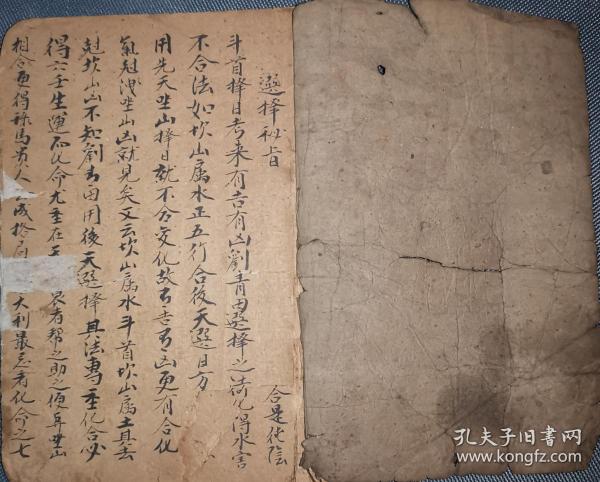 選擇秘旨
斗首擇日考來有吉有凶劉青田選擇之法化得水害
不合法如坎山属水正五行合後天選日方
合是純陰
用先天坐山擇日就不分变化故有吉有凶更有合化
氣尅洩坐山凶就見矣又云坎山属水斗首坎山属土其去
尅坎山凶不知劉青田用後天選擇其法專重化合必
得六壬生運化命尤重在 衰者帮之助之便是坐山
相合更得祿馬貴人 成格局 大利最忌者化命之七
孔夫子旧書网
www.kongfz.com